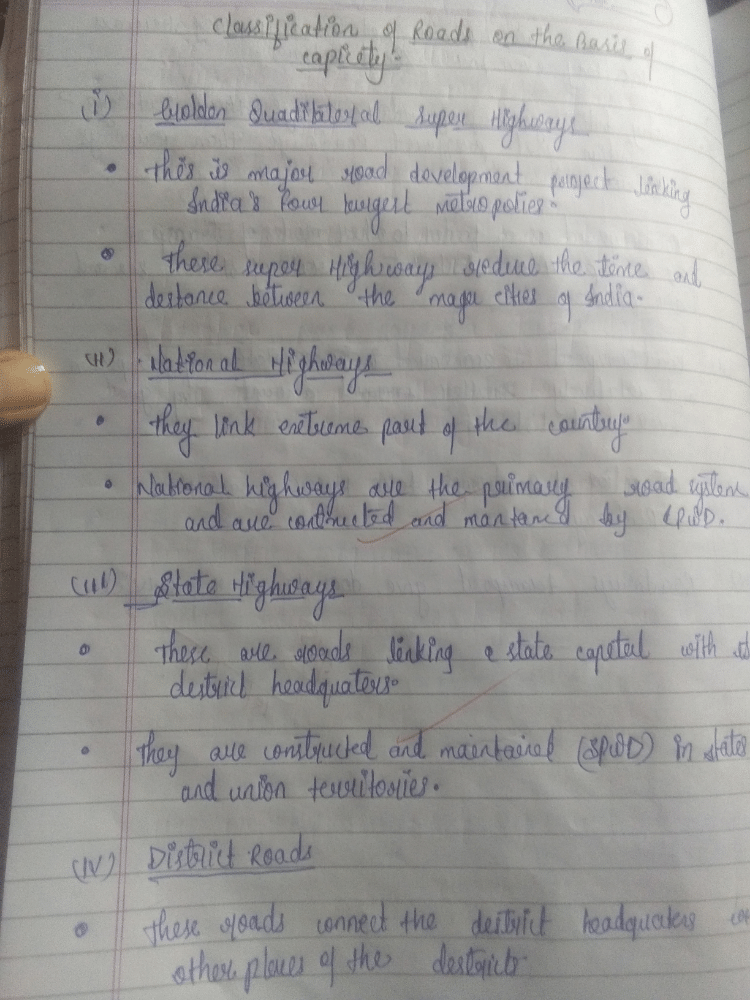 Classification of Roads on the Basis of
capicety:-
(i) Golden Quadilateral super Highways
• this is major road development project linking
India's four largest metropolies.
• These super Highways reduce the time and
destance between the major cities of India.
(ii) National Highways
• they link extreme part of the country.
• National highways are the primary road system
and are contructed and mantaned by CPWD.
(iii) State Highways
• These are roads linking a state capetal with
destrict headquaters.
• They are constructed and maintained (SPWD) in states
and union territories.
(iv) District Roads
• These roads connect the destrict headquaters
other places of the destrict.